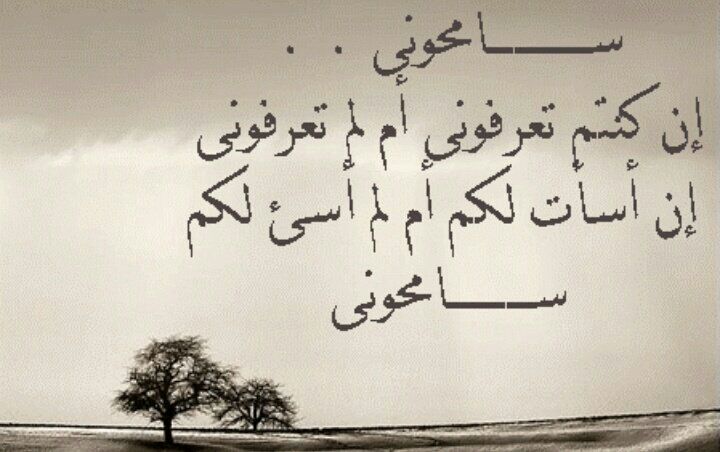 ســـــــــامحوني . .
إن كنتم تعرفونى أم لم تعرفونى
إن أسأت لكم أم لم أسئ لكم
ســـــــــامحونى